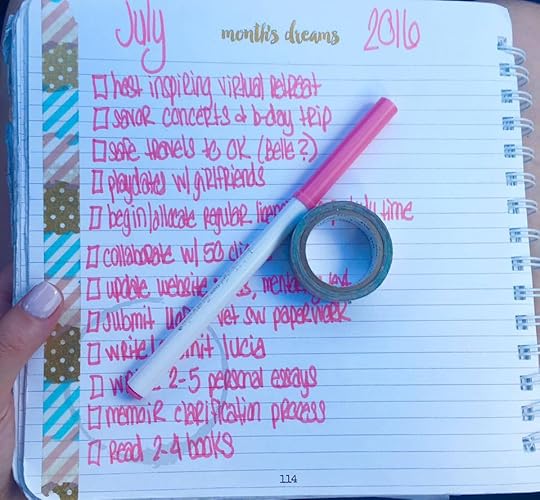 July month's dreams 2016
☐ host inspiring virtual retreat
☐ savor concepts & b-day trip
☐ safe travels to OK (Belle?)
☐ playdates w/ girlfriends
☐ begin/allocate regular time
☐ collaborate w/ 50
☐ update website
☐ submit vet sw paperwork
☐ write lucia
☐ 2-5 personal essays
☐ memoir clarification process
☐ read 2-4 books
114